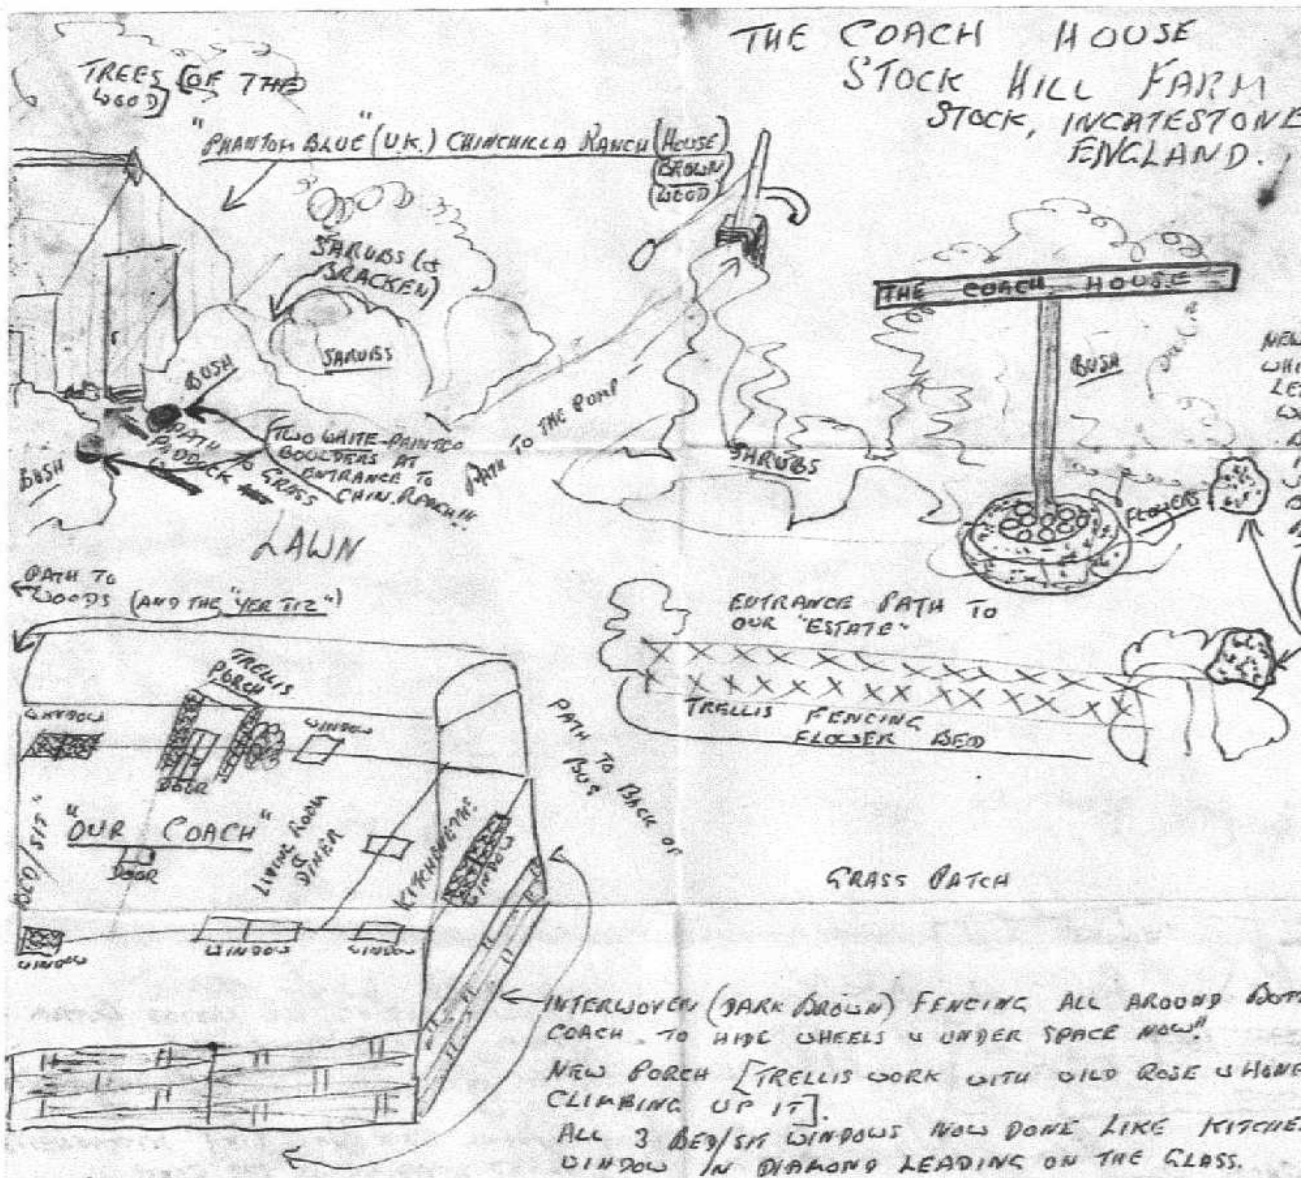 THE COACH HOUSE
STOCK HILL FARM
STOCK, INCATESTONE
ENGLAND.
TREES (OF THE
WOOD)
"PHANTOM BLUE" (U.K.) CHINCHILLA RANCH (HOUSE)
(BROWN
WOOD)
SHRUBS (&
BRACKEN)
SHRUBS
BUSH
BUSH
PATH TO GRASS
PADDOCK
(TWO WHITE-PAINTED
BOULDERS AT
ENTRANCE TO
CHIN. RANCH!!!
PATH TO THE PUMP
SHRUBS
THE COACH HOUSE
BUSH
FLOWERS
NEW
WHI
LE
W
LAWN
PATH TO
WOODS (AND THE "YER TIZ")
ENTRANCE PATH TO
OUR "ESTATE"
TRELLIS FENCING
FLOWER BED
TRELLIS
PORCH
WINDOW
WINDOW
DOOR
PATH TO BACK OF
BUS
BED/SIT"
"OUR COACH"
DOOR
LIVING ROOM
&
DINER
KITCHENETTE
WINDOW
WINDOW
WINDOW
WINDOW
GRASS PATCH
INTERWOVEN (DARK BROWN) FENCING ALL AROUND BOTT
COACH TO HIDE WHEELS & UNDER SPACE NOW"
NEW PORCH [TRELLIS WORK WITH WILD ROSE & HONE
CLIMBING UP IT].
ALL 3 BED/SIT WINDOWS NOW DONE LIKE KITCHE
WINDOW IN DIAMOND LEADING ON THE GLASS.